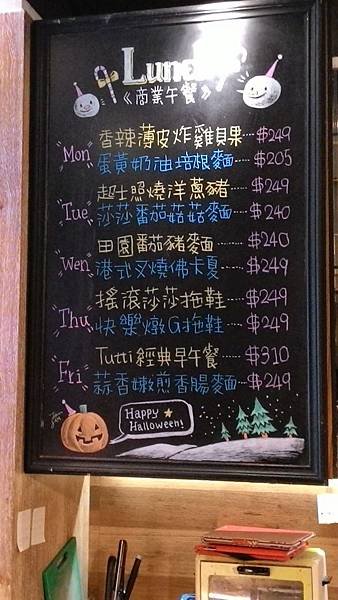 Lunch
《商業午餐》
Mon 香辣薄皮炸雞貝果 ---- $249
蛋黃奶油培根麵 ---- $205
Tue 起士照燒洋蔥豬 ---- $249
莎莎番茄菇菇麵 ---- $240
Wen 田園番茄豬麵 ---- $240
港式叉燒佛卡夏 ---- $249
Thu 搖滾莎莎拖鞋 ---- $249
快樂燉G拖鞋 ---- $249
Fri Tutti經典早午餐 ---- $310
蒜香嫩煎香腸麵 ---- $249
Happy
Halloween!